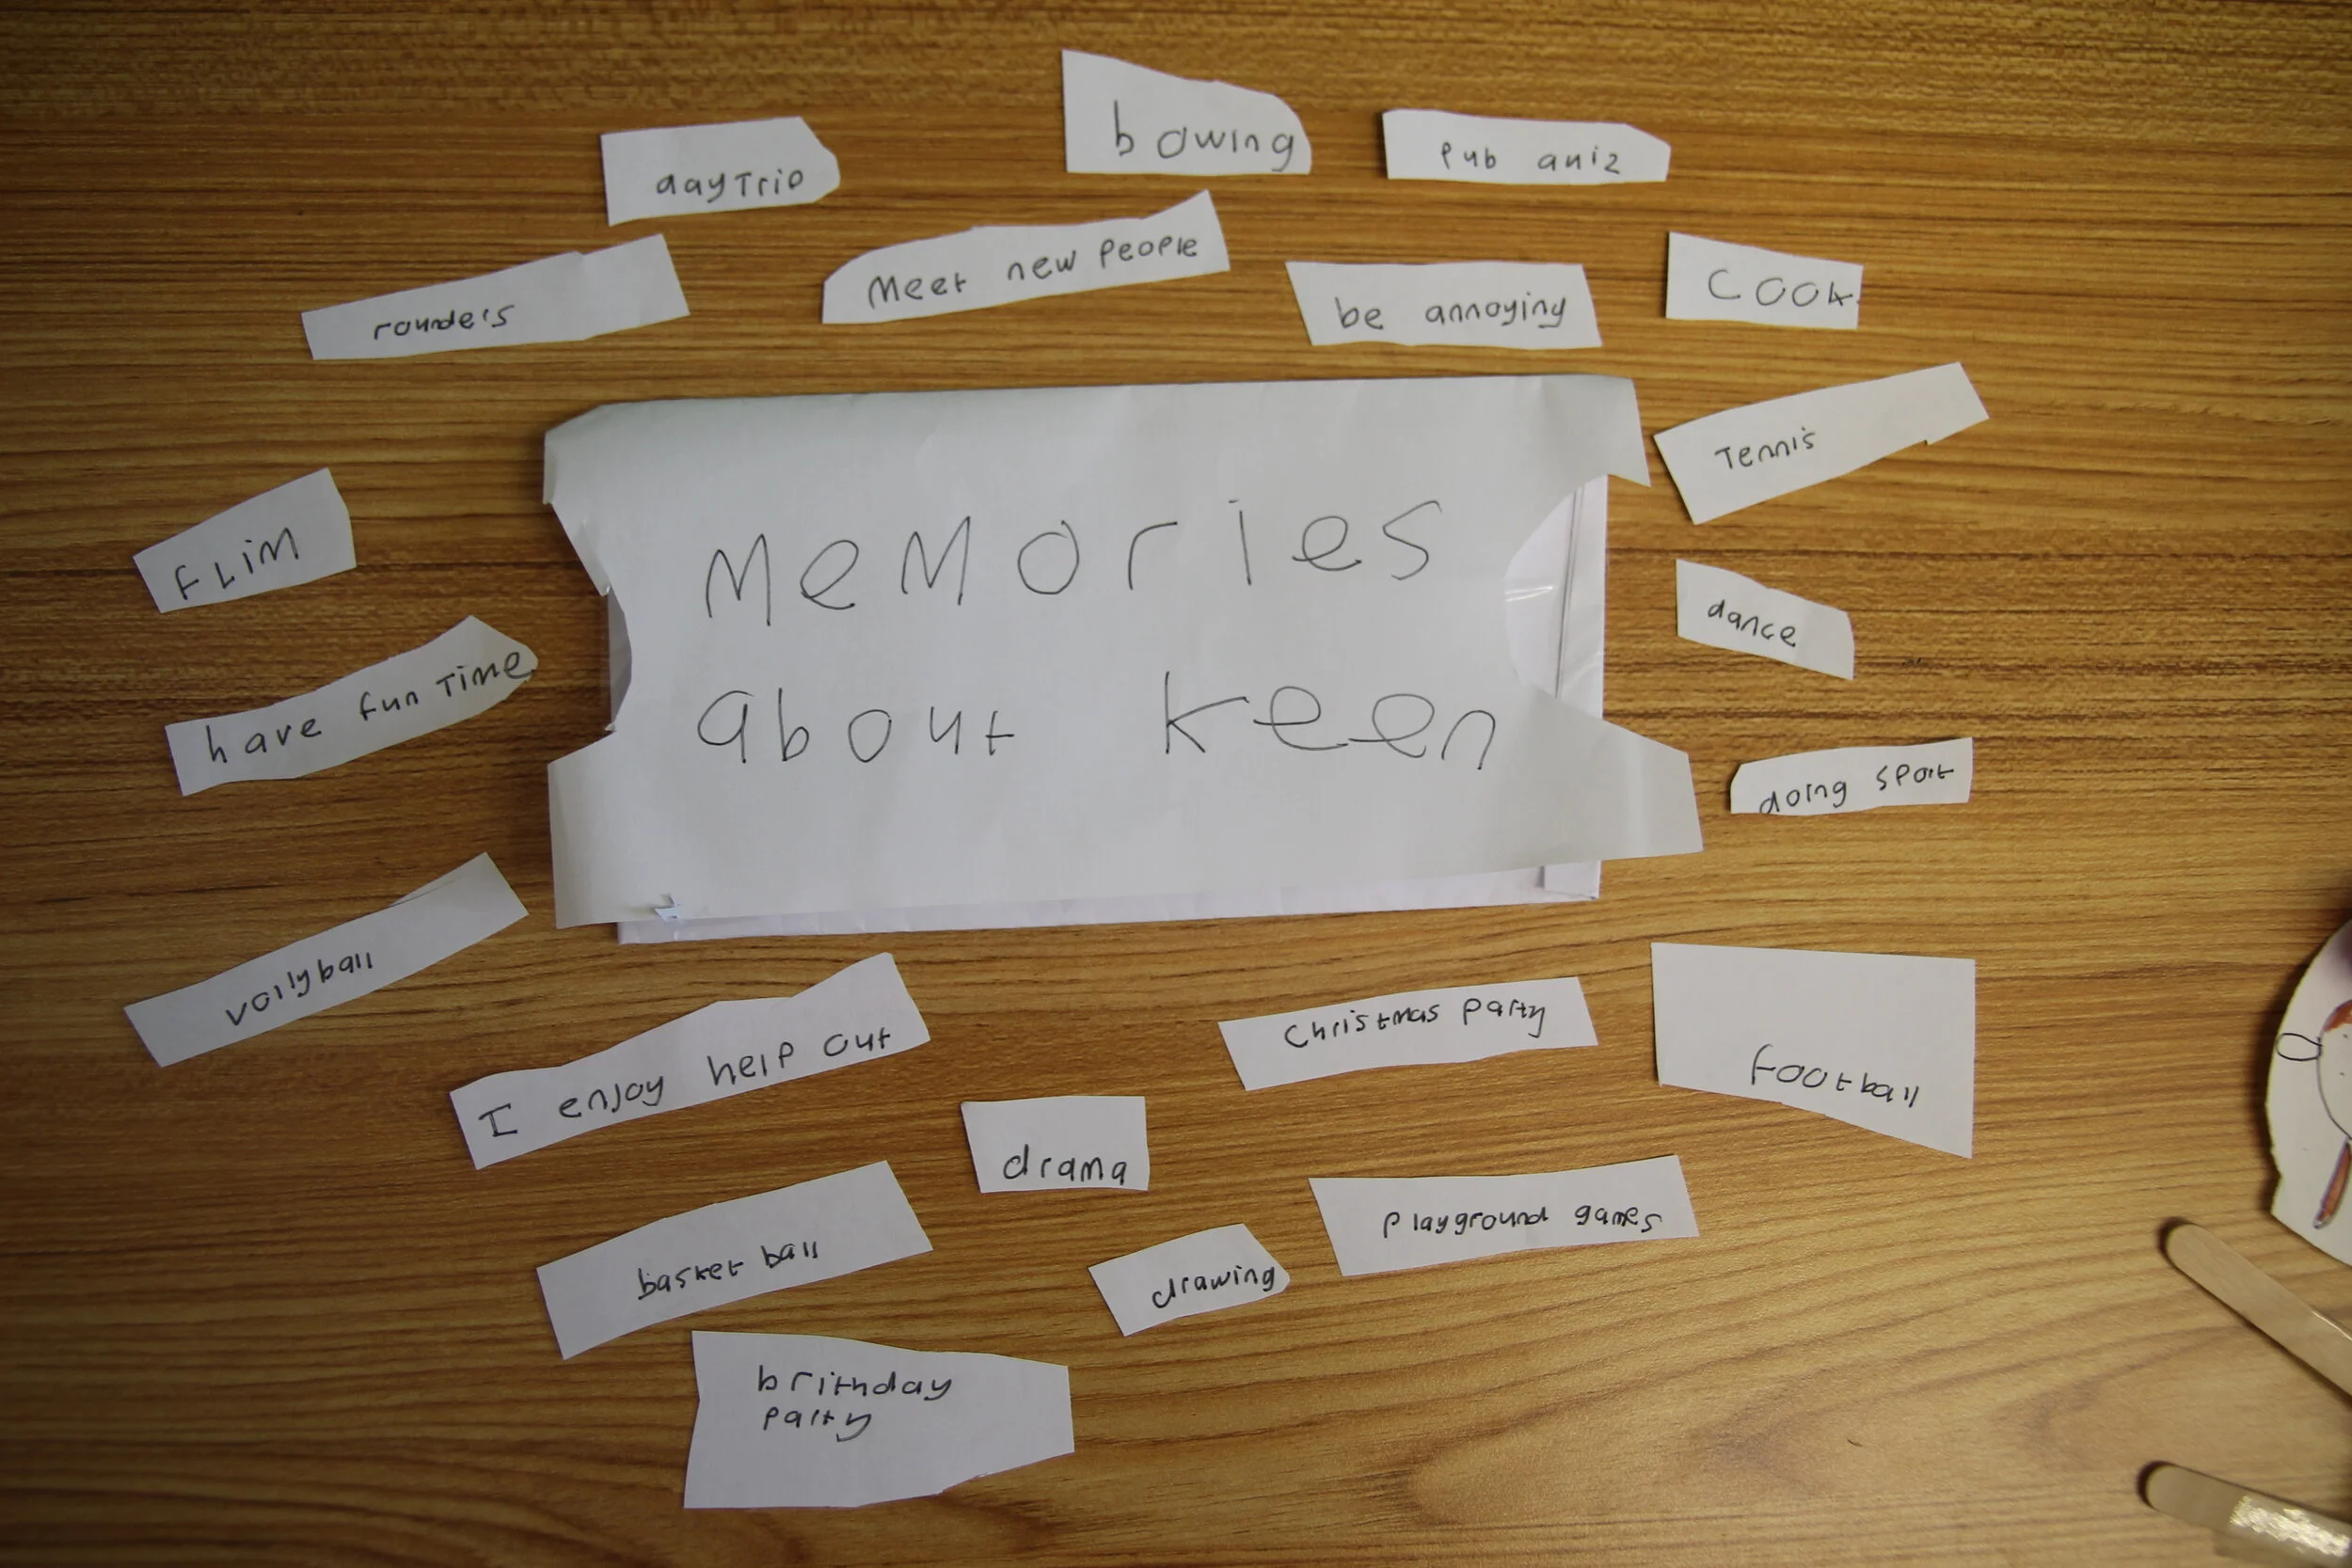 bowing
pub quiz
daytrip
Meet new people
rounders
be annoying
COOK
Tennis
MeMories
about keen
FLiM
dance
have fun Time
doing sport
vollyball
I enjoy help out
Christmas party
football
drama
playground games
basket ball
drawing
brithday
party